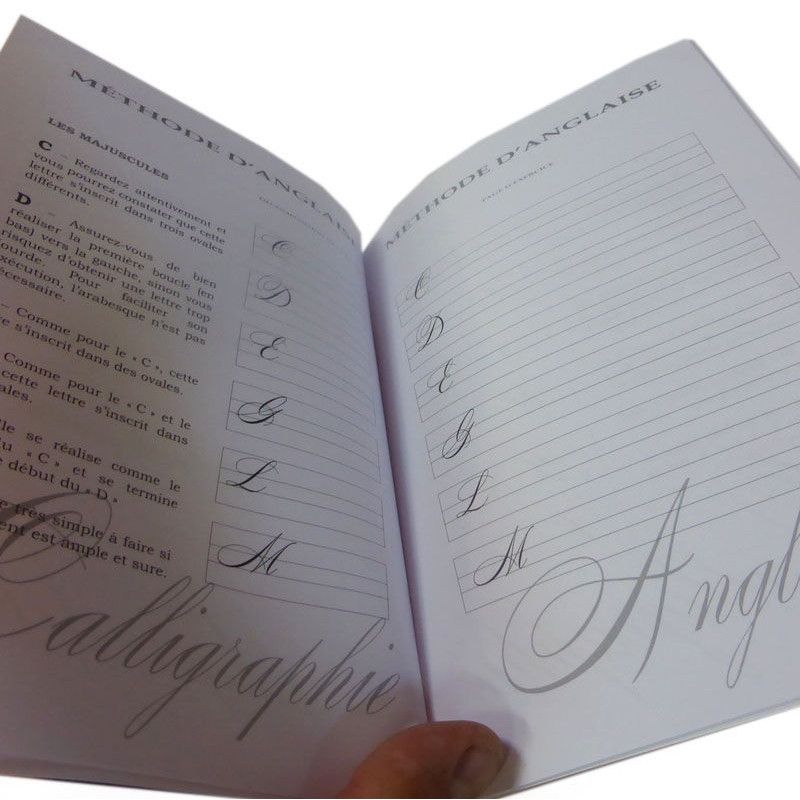 MÉTHODE D'ANGLAISE
LES MAJUSCULES
C – Regardez attentivement et
vous pourrez constater que cette
lettre s'inscrit dans trois ovales
différents.
D – Assurez-vous de bien
réaliser la première boucle (en
bas) vers la gauche, sinon vous
risquez d'obtenir une lettre trop
lourde. Pour faciliter son
exécution, l'arabesque n'est pas
nécessaire.
– Comme pour le « C », cette
s'inscrit dans des ovales.
Comme pour le « C » et le
cette lettre s'inscrit dans
se réalise comme le
« C » et se termine
début du « D »
très simple à faire si
est ample et sure.
C
D
E
G
L
M
Calligraphie
MÉTHODE D'ANGLAISE
PAGE D'EXERCICE
C
D
E
G
L
M
Angl